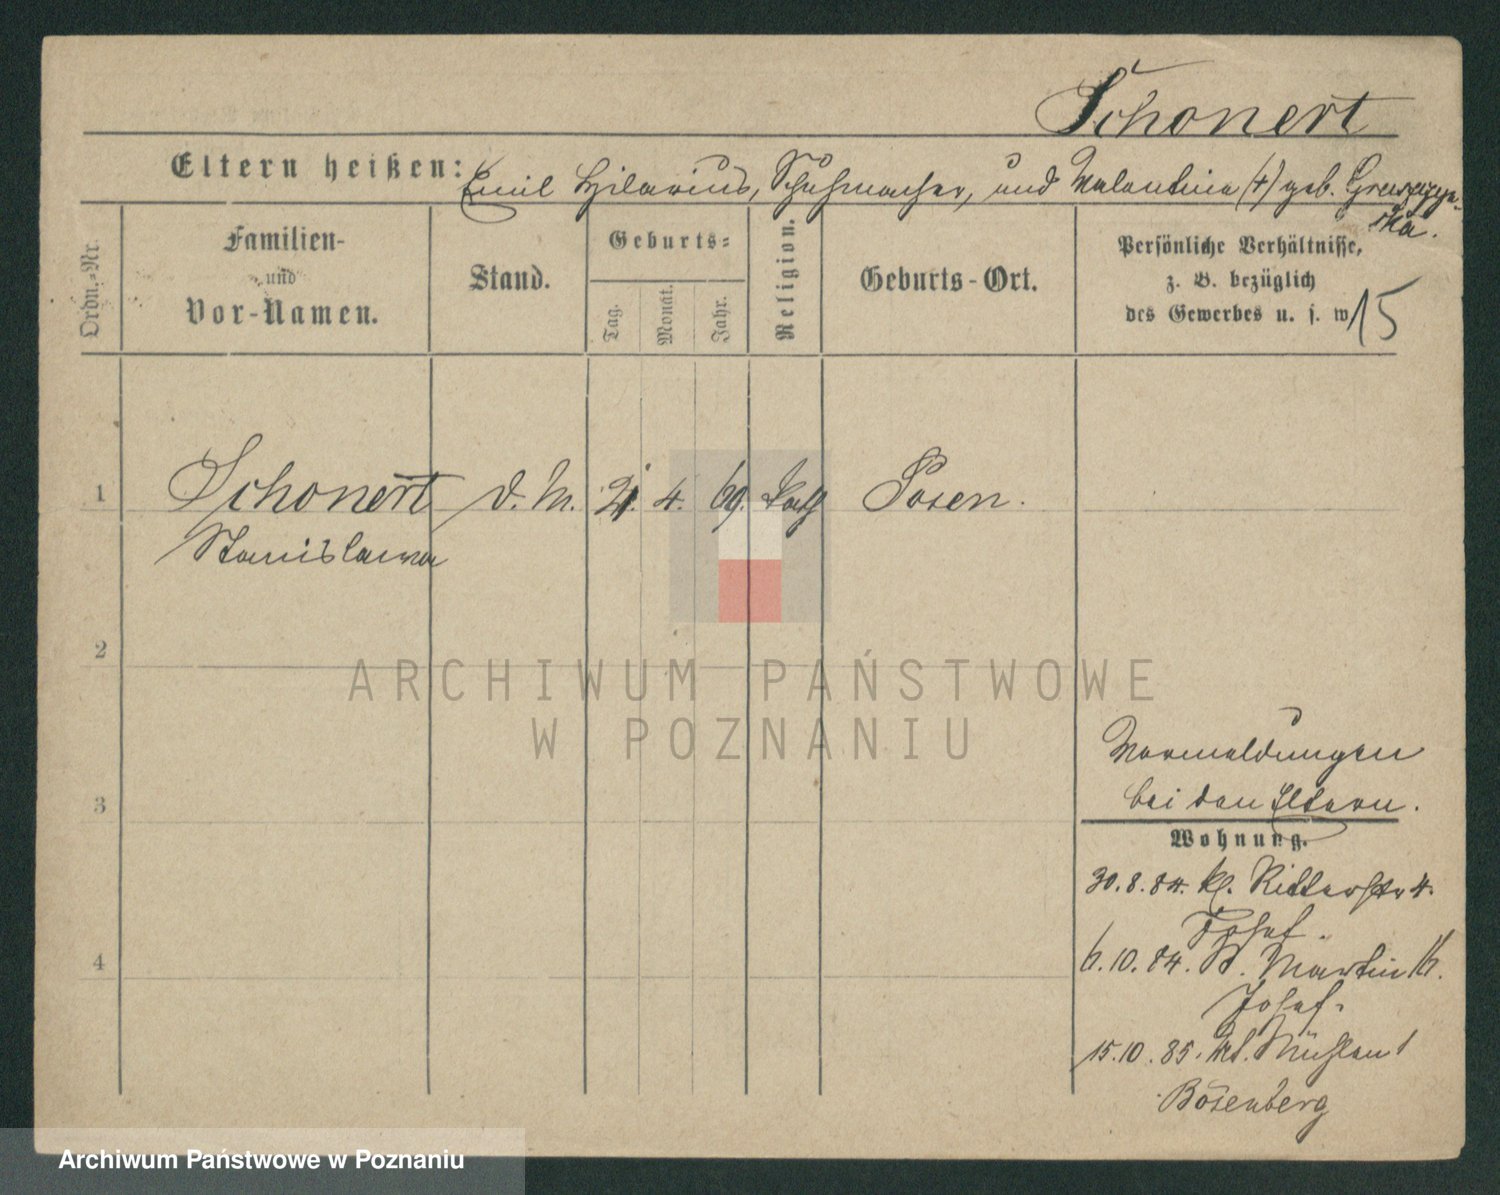 Schonert
Eltern heißen: Emil Hilarius, Schuhmacher, und Valentina (+) geb.
ska.
Ordn.-Nr.
Familien-
und
Vor-Namen.
Stand.
Geburts-
Tag.
Monat.
Jahr.
Religion.
Geburts-Ort.
Persönliche Verhältnisse,
z. B. bezüglich
des Gewerbes u. s. w
15
1 Schonert d. M. 21. 4. 69. kath Posen.
Stanislawa
2
ARCHIWUM PAŃSTWOWE
W POZNANIU
Vormeldungen
bei den Eltern.
3
Wohnung.
30.8.84. kl. Ritterstr 4.
Josef.
4
6.10.84. St. Martin 16.
Josef.
15.10.85. Mühlen 1
Bösenberg
Archiwum Państwowe w Poznaniu